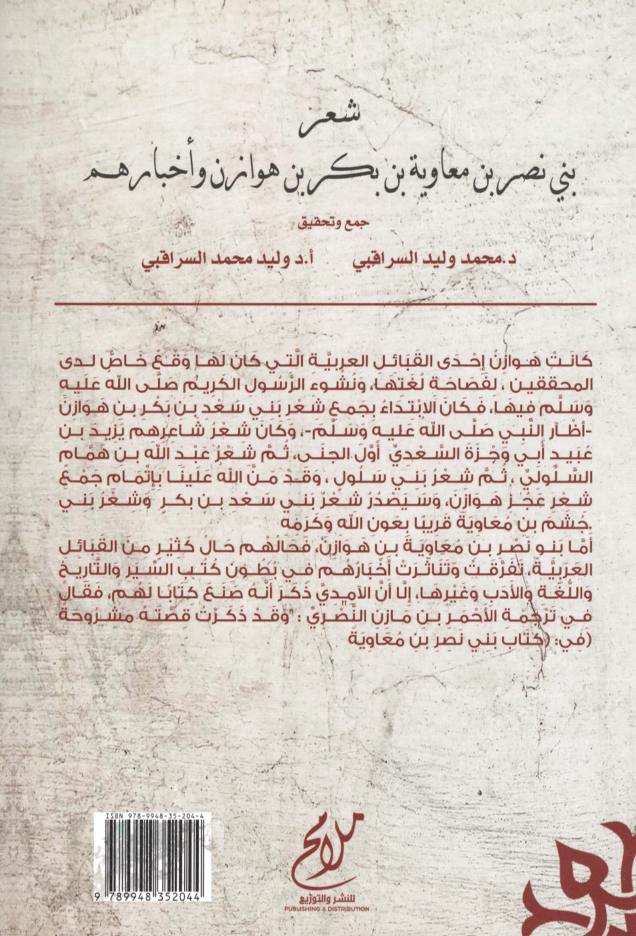 شعر
بني نصر بن معاوية بن بكر بن هوازن وأخبارهم
جمع وتحقيق
د.محمد وليد السراقبي أ.د وليد محمد السراقبي
كَانَتْ هَوازِنُ إِحْدَى القَبَائل العَربيَّة الَّتي كان لها وَقْعٌ خَاصٌّ لدى
المحققين ، لفَصَاحَة لُغَتهَا، وَنُشوء الرَّسُول الكريم صَلَّى الله عَلَيه
وَسَلَّم فيهَا، فَكَان الابْتدَاءُ بجَمع شعْر بَني سَعْد بن بَكر بن هَوَازنَ
-أظآر النَّبي صَلَّى الله عَليه وَسَلَّم-، وَكَان شعْرُ شاعرهم يَزيدَ بن
عبيد أبي وَجْزَةَ السَّعْديِّ أوَّل الجنَى، ثمَّ شعْرُ عَبْد الله بن هَمَّام
السَّلُوليِّ ، ثُمَّ شعْرُ بَني سَلُولٍ ، وَقَدْ مَنَّ الله عَلَينَا بإتْمَام جَمْعُ
شعْر عَجُز هَوازنَ، وَسَيَصْدرُ شعْرُ بَني سَعد بن بكر وَشعْرُ بَني
جُشَمَ بن مُعَاويَةَ قَريبًا بعَون الله وَكَرَمه.
أمَّا بَنو نَصْر بن مُعَاويَةَ بن هَوَازنَ، فَحَالهُم حَال كَثيْر منَ القَبَائل
العَرَبيَّة، تَفَرَّقَتْ وَتَنَاثَرَتْ أخْبَارُهم في بُطُون كُتُب السِّيَر وَالتَّاريخ
وَاللُّغَة وَالأدَب وَغَيْرهَا، إلَّا أنَّ الآمديَّ ذَكَرَ أنَّه صَنَعَ كتَابًا لهُم، فَقَال
في تَرْجَمَة الأحْمَر بن مَازن النَّصْريِّ : "وَقَدْ ذَكَرتُ قصَّتَهُ مَشْرُوحَةً
(في: (كتَاب بَني نَصر بن مُعَاويَة
ISBN 978-9948-35-204-4
9 789948 352044
ملامح
للنشر والتوزيع
PUBLISHING & DISTRIBUTION